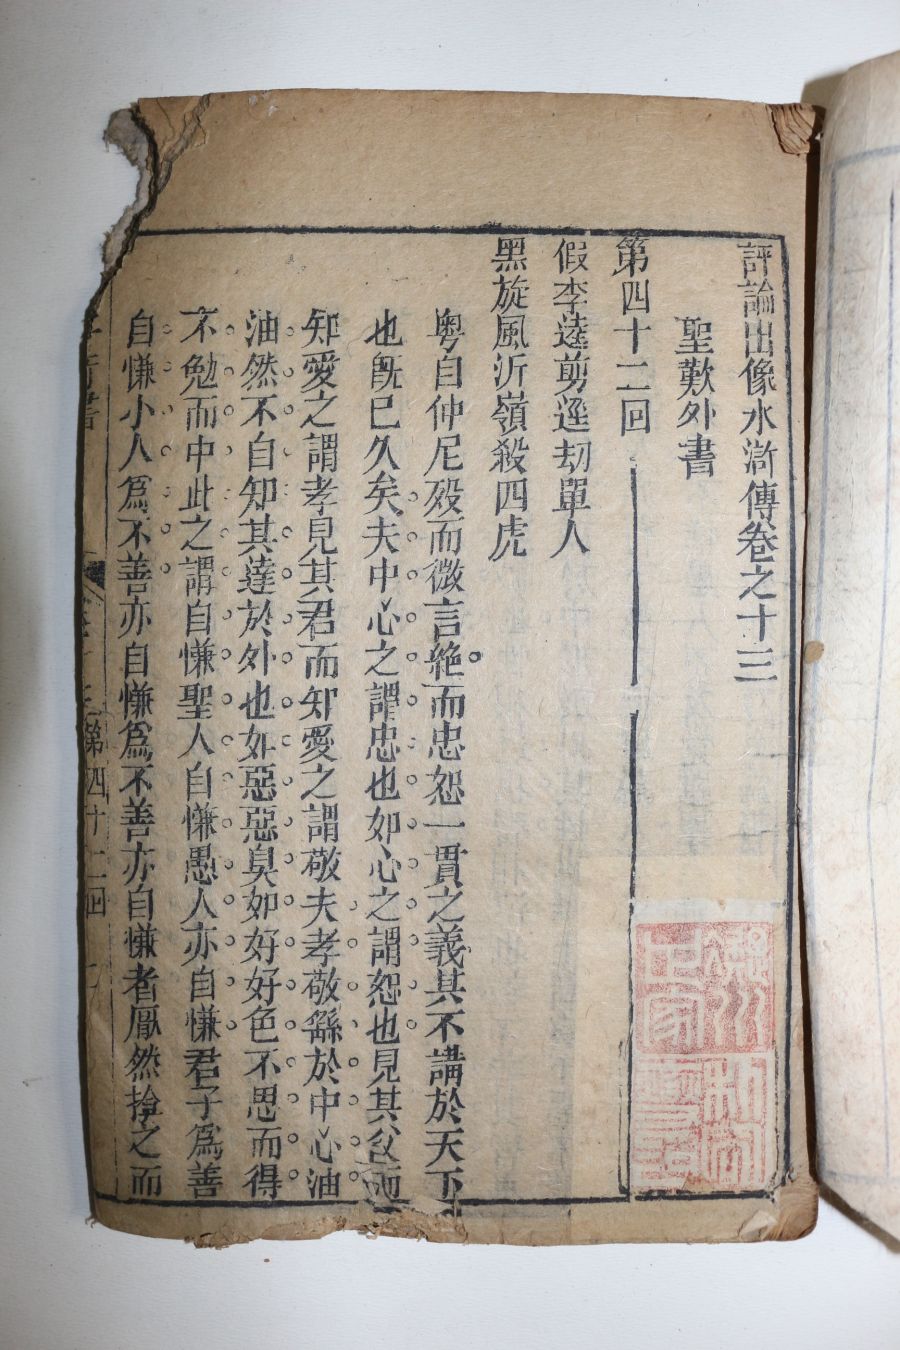 評論出像水滸傳卷之十三
聖歎外書
第四十二回
假李逵剪逕劫單人
黑旋風沂嶺殺四虎
粤自仲尼歿而微言絶而忠恕一貫之義其不講於天下
也旣已久矣夫中心之謂忠也如心之謂恕也見其父而
知愛之謂孝見其君而知愛之謂敬夫孝敬繇於中心油
油然不自知其達於外也如惡惡臭如好好色不思而得
不勉而中此之謂自慊聖人自慊愚人亦自慊君子爲善
自慊小人爲不善亦自慊爲不善亦自慊者厭然揜之而
第四十二回